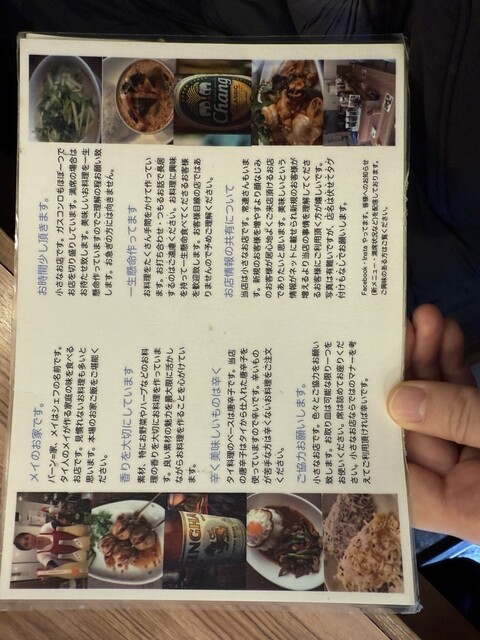 メイのお家です。
バーン＝家、メイはシェフの名前です。
タイ人のメイが作る家庭の味を食べる
お店です。見慣れないお料理も多いと
思います。本場のお家ご飯をご堪能く
ださい。
香りを大切にしています
素材、特にお野菜やハーブなどのお料
理の香りを大切にお料理を作っていま
す。良い素材の魅力を最大限に活かし
ながらお料理を作ることを心がけてい
ます。
辛く美味しいものは辛く
タイ料理のベースは唐辛子です。当店
の唐辛子はタイから仕入れた唐辛子を
使っていますので辛いです。辛いもの
が苦手な方は辛くないお料理をご注文
ください。
ご協力お願いします。
小さなお店です。色々とご協力をお願い
致します。お取り皿は可能な限り一つを
お使いください。席は詰めてお座りくだ
さい。小さなお店ならではのマナーを考
えてご利用頂ければ幸いです。
SINGHA
お時間少し頂きます。
小さなお店です。ガスコンロもほぼ一つで
お店を切り盛りしています。満席の場合は
お待たせします。美味しいお料理を一生
懸命作っていますのでご理解の程お願い致
します。お急ぎの方には向きません。
一生懸命作ってます
お料理をたくさん手間をかけて作ってい
ます。お打ち合わせ・つるむお話で長居
するのはご遠慮ください。お料理に興味
を持って一生懸命食べてくださるお客様
を歓迎致します。お客様目線の店ではあ
りませんの予めご理解ください。
お店情報の共有について
当店は小さなお店です。常連さんもいま
す。新規のお客様を増やすより顔なじみ
のお客様が居心地よくご来店頂けるお店
でありたいと思います。美味しいという
情報がネットに載せられ新規のお客様が
増えるより当店の事情を理解してくださ
るお客様にご利用頂く方が嬉しいです。
写真は有難いですが、店名は伏せもタグ
付けもなしでお願いします。
Facebook・Insta やってます。皆様へのお知らせ
(新メニュー・満席状況など)を配信しております。
ご興味のある方はご覧ください。
Chang